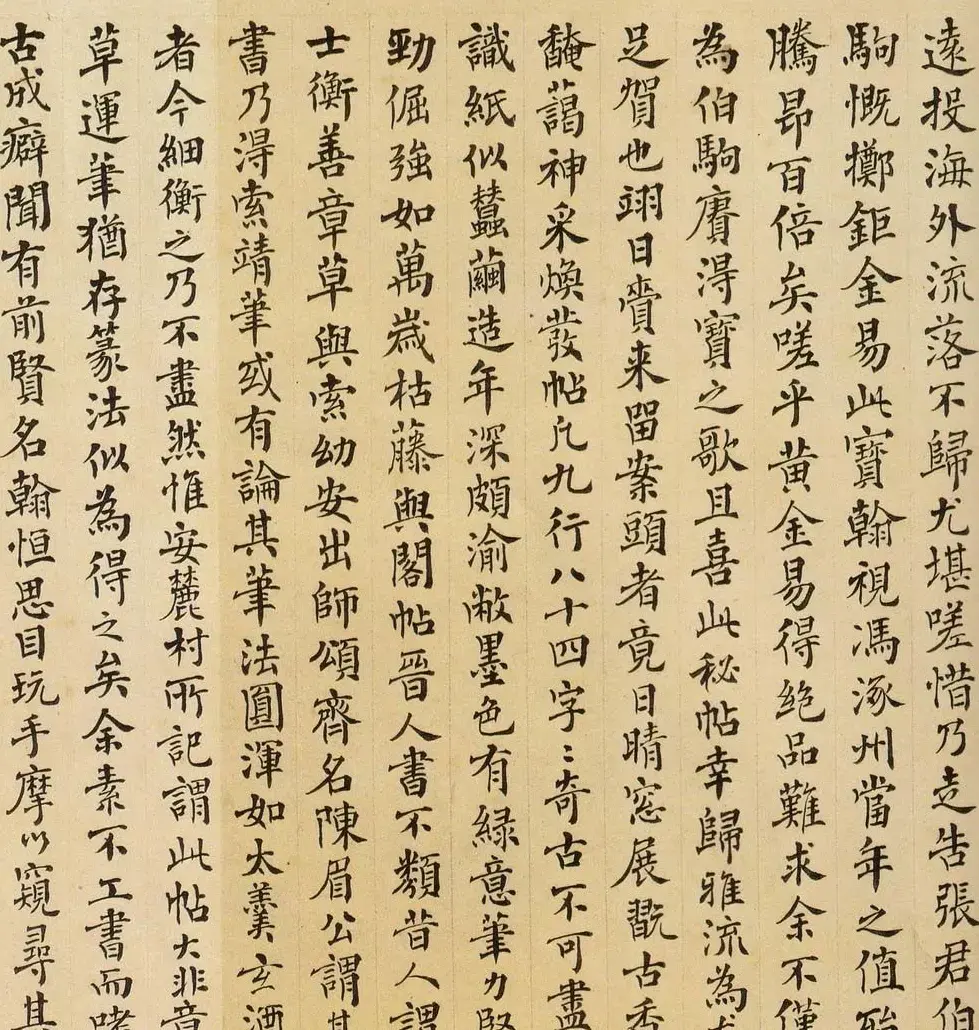 遠投海外流落不歸尤堪嗟惜乃走告張君伯
駒慨擲鉅金易此寶翰視馮涿州當年之值殆
騰昂百倍矣嗟乎黃金易得絶品難求余不僅
為伯駒賡淂寶之歌且喜此秘帖幸歸雅流為尤
足賀也翊日賷来留案頭者竟日晴窓展翫古香
馣藹神采煥發帖凡九行八十四字〻奇古不可盡
識紙似蠶繭造年深頗渝敝墨色有緑意筆力堅
勁倔強如萬歲枯藤與閣帖晉人書不類昔人謂
士衡善章草與索幼安出師頌齊名陳眉公謂其
書乃淂索靖筆或有論其筆法圓渾如太羹玄酒
者今細衡之乃不盡然惟安麓村所記謂此帖大非章
草運筆猶存篆法似為得之矣余素不工書而嗜
古成癖聞有前賢名翰恒思目玩手摩以窺尋其